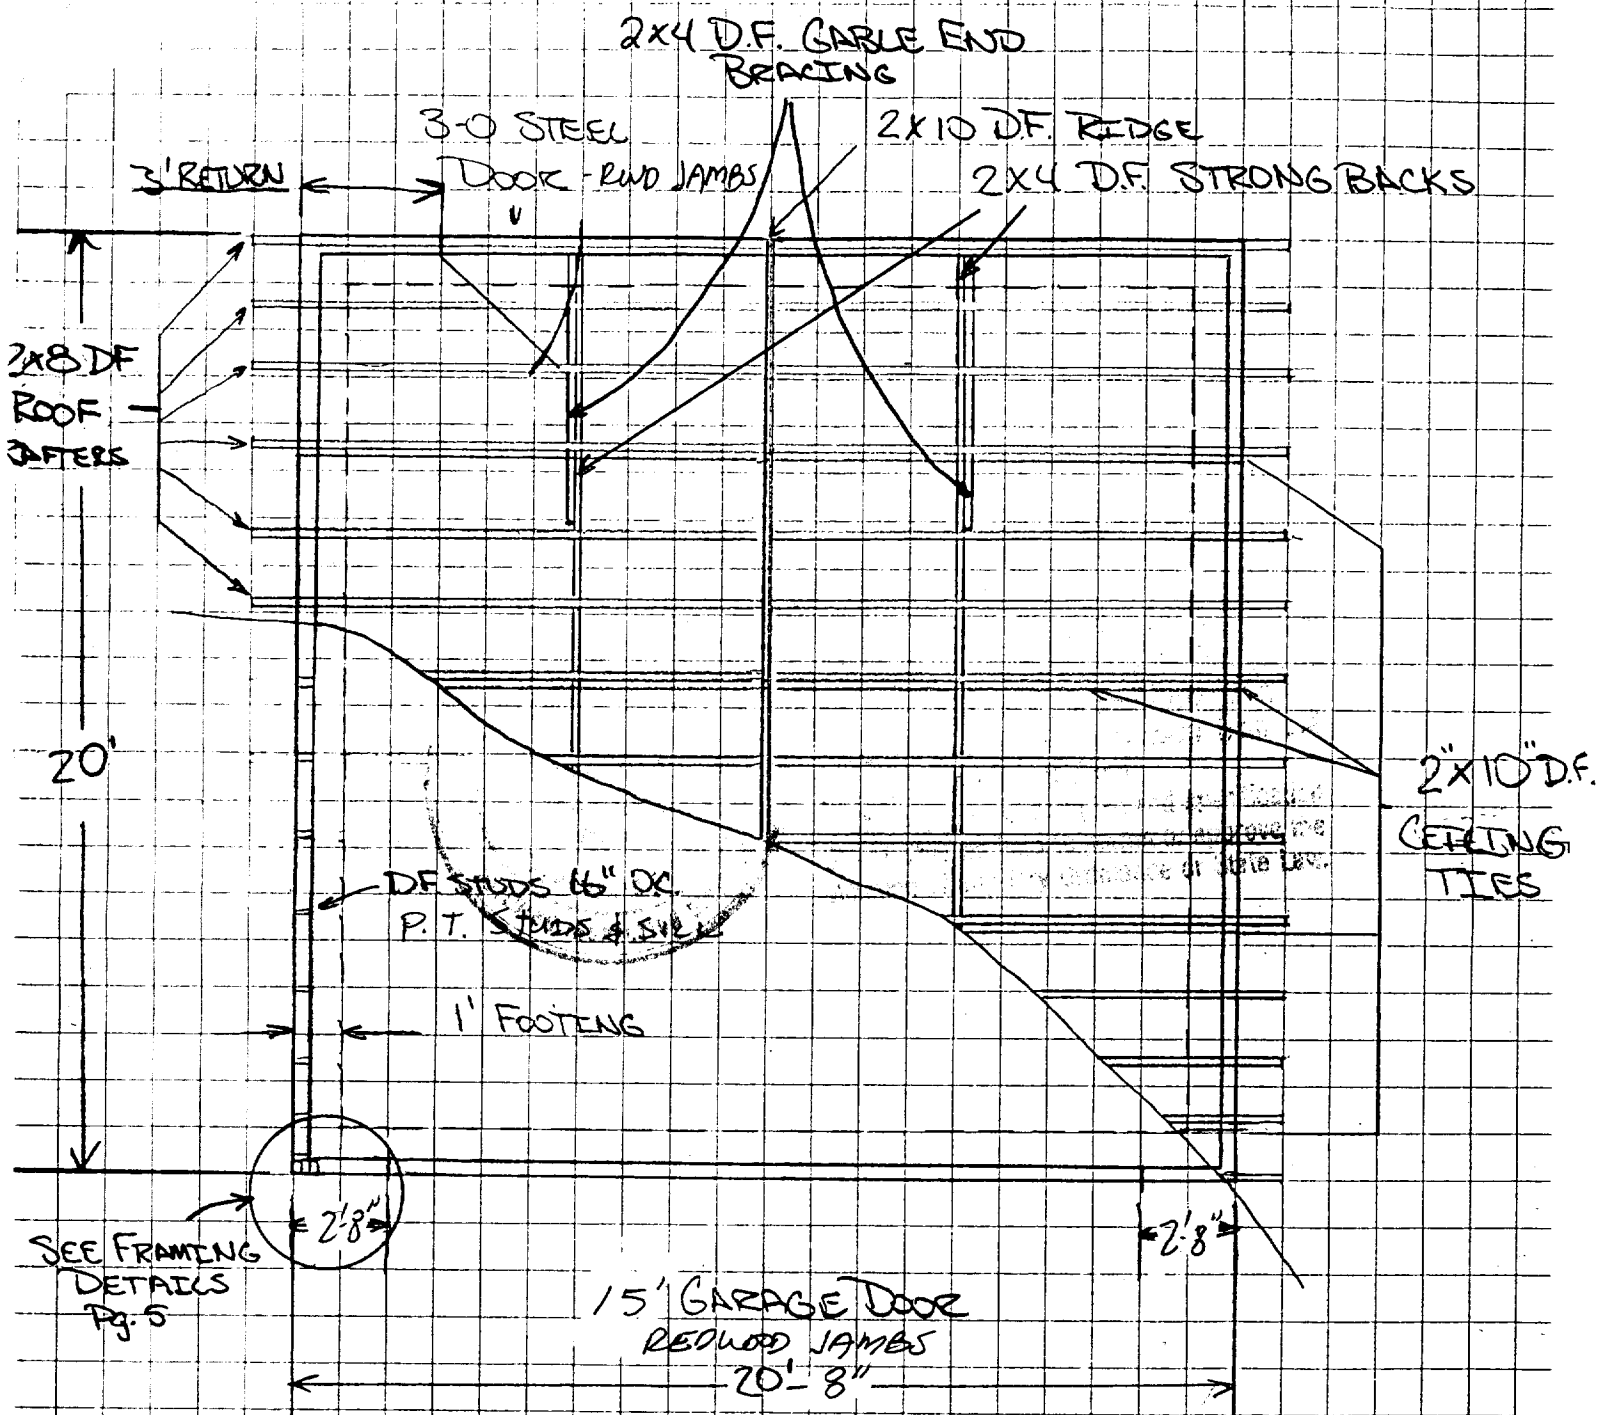 2x4 D.F. GABLE END
BRACING
3-0 STEEL
DOOR - RWD JAMBS
2x10 D.F. RIDGE
2x4 D.F. STRONG BACKS
3' RETURN
2x8 DF
ROOF
RAFTERS
20'
2"x10" D.F.
CEILING
TIES
DF STUDS 16" O.C.
P.T. STUDS & SILL
1' FOOTING
2'-8"
2'-8"
SEE FRAMING
DETAILS
Pg. 5
15' GARAGE DOOR
REDWOOD JAMBS
20'-8"